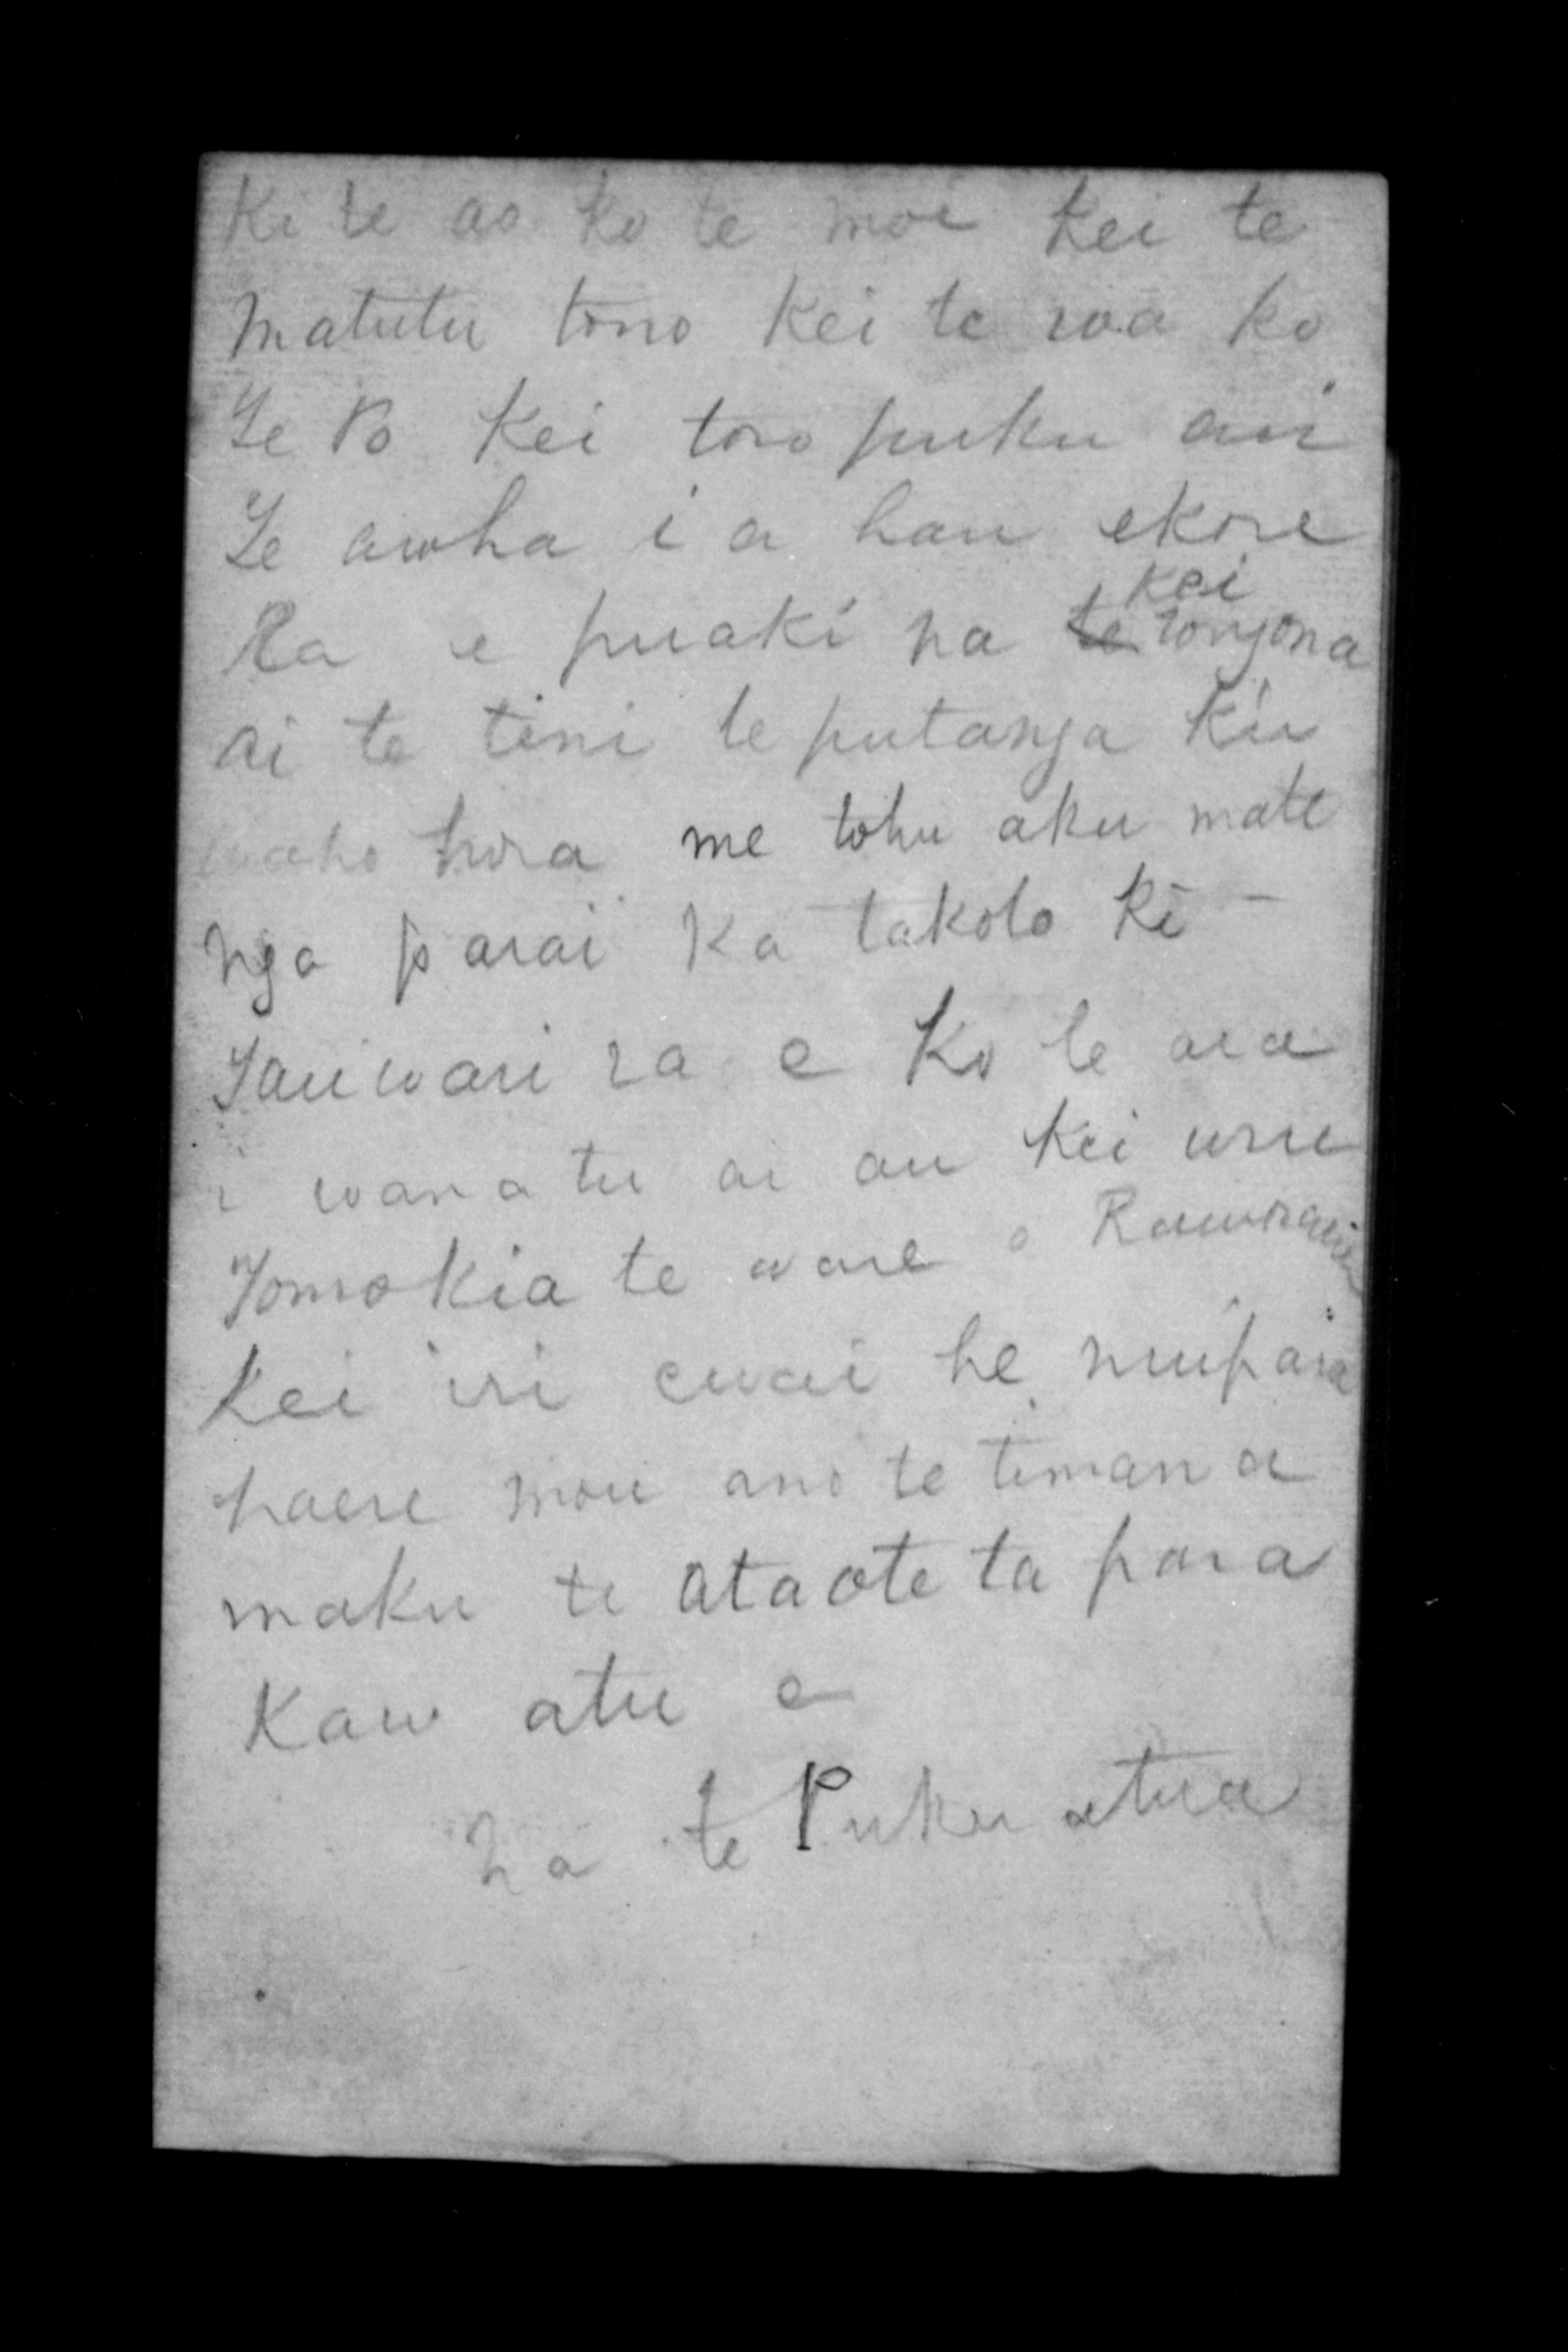 Ki te ao ko te moe kei te
matutu tono kei te roa ko
Te Po kei toro puku au
Te awha i a hau ekore
Ra e puaki na te kei rongona
ai te tini te putanga kii
waho hira me tohu aku mate
nga parai ka takoto ki -
Tauwari ra e Ko te ara
i wanatu ai au kei uru
Tomokia te ware o
kei iri ewai he nuipaia
haere mou ano te timana
maku te ataoteta para
Kaw atu e
na te Puku atua